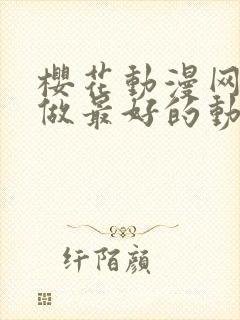 櫻花動漫网
做最好的動
纤陌顔